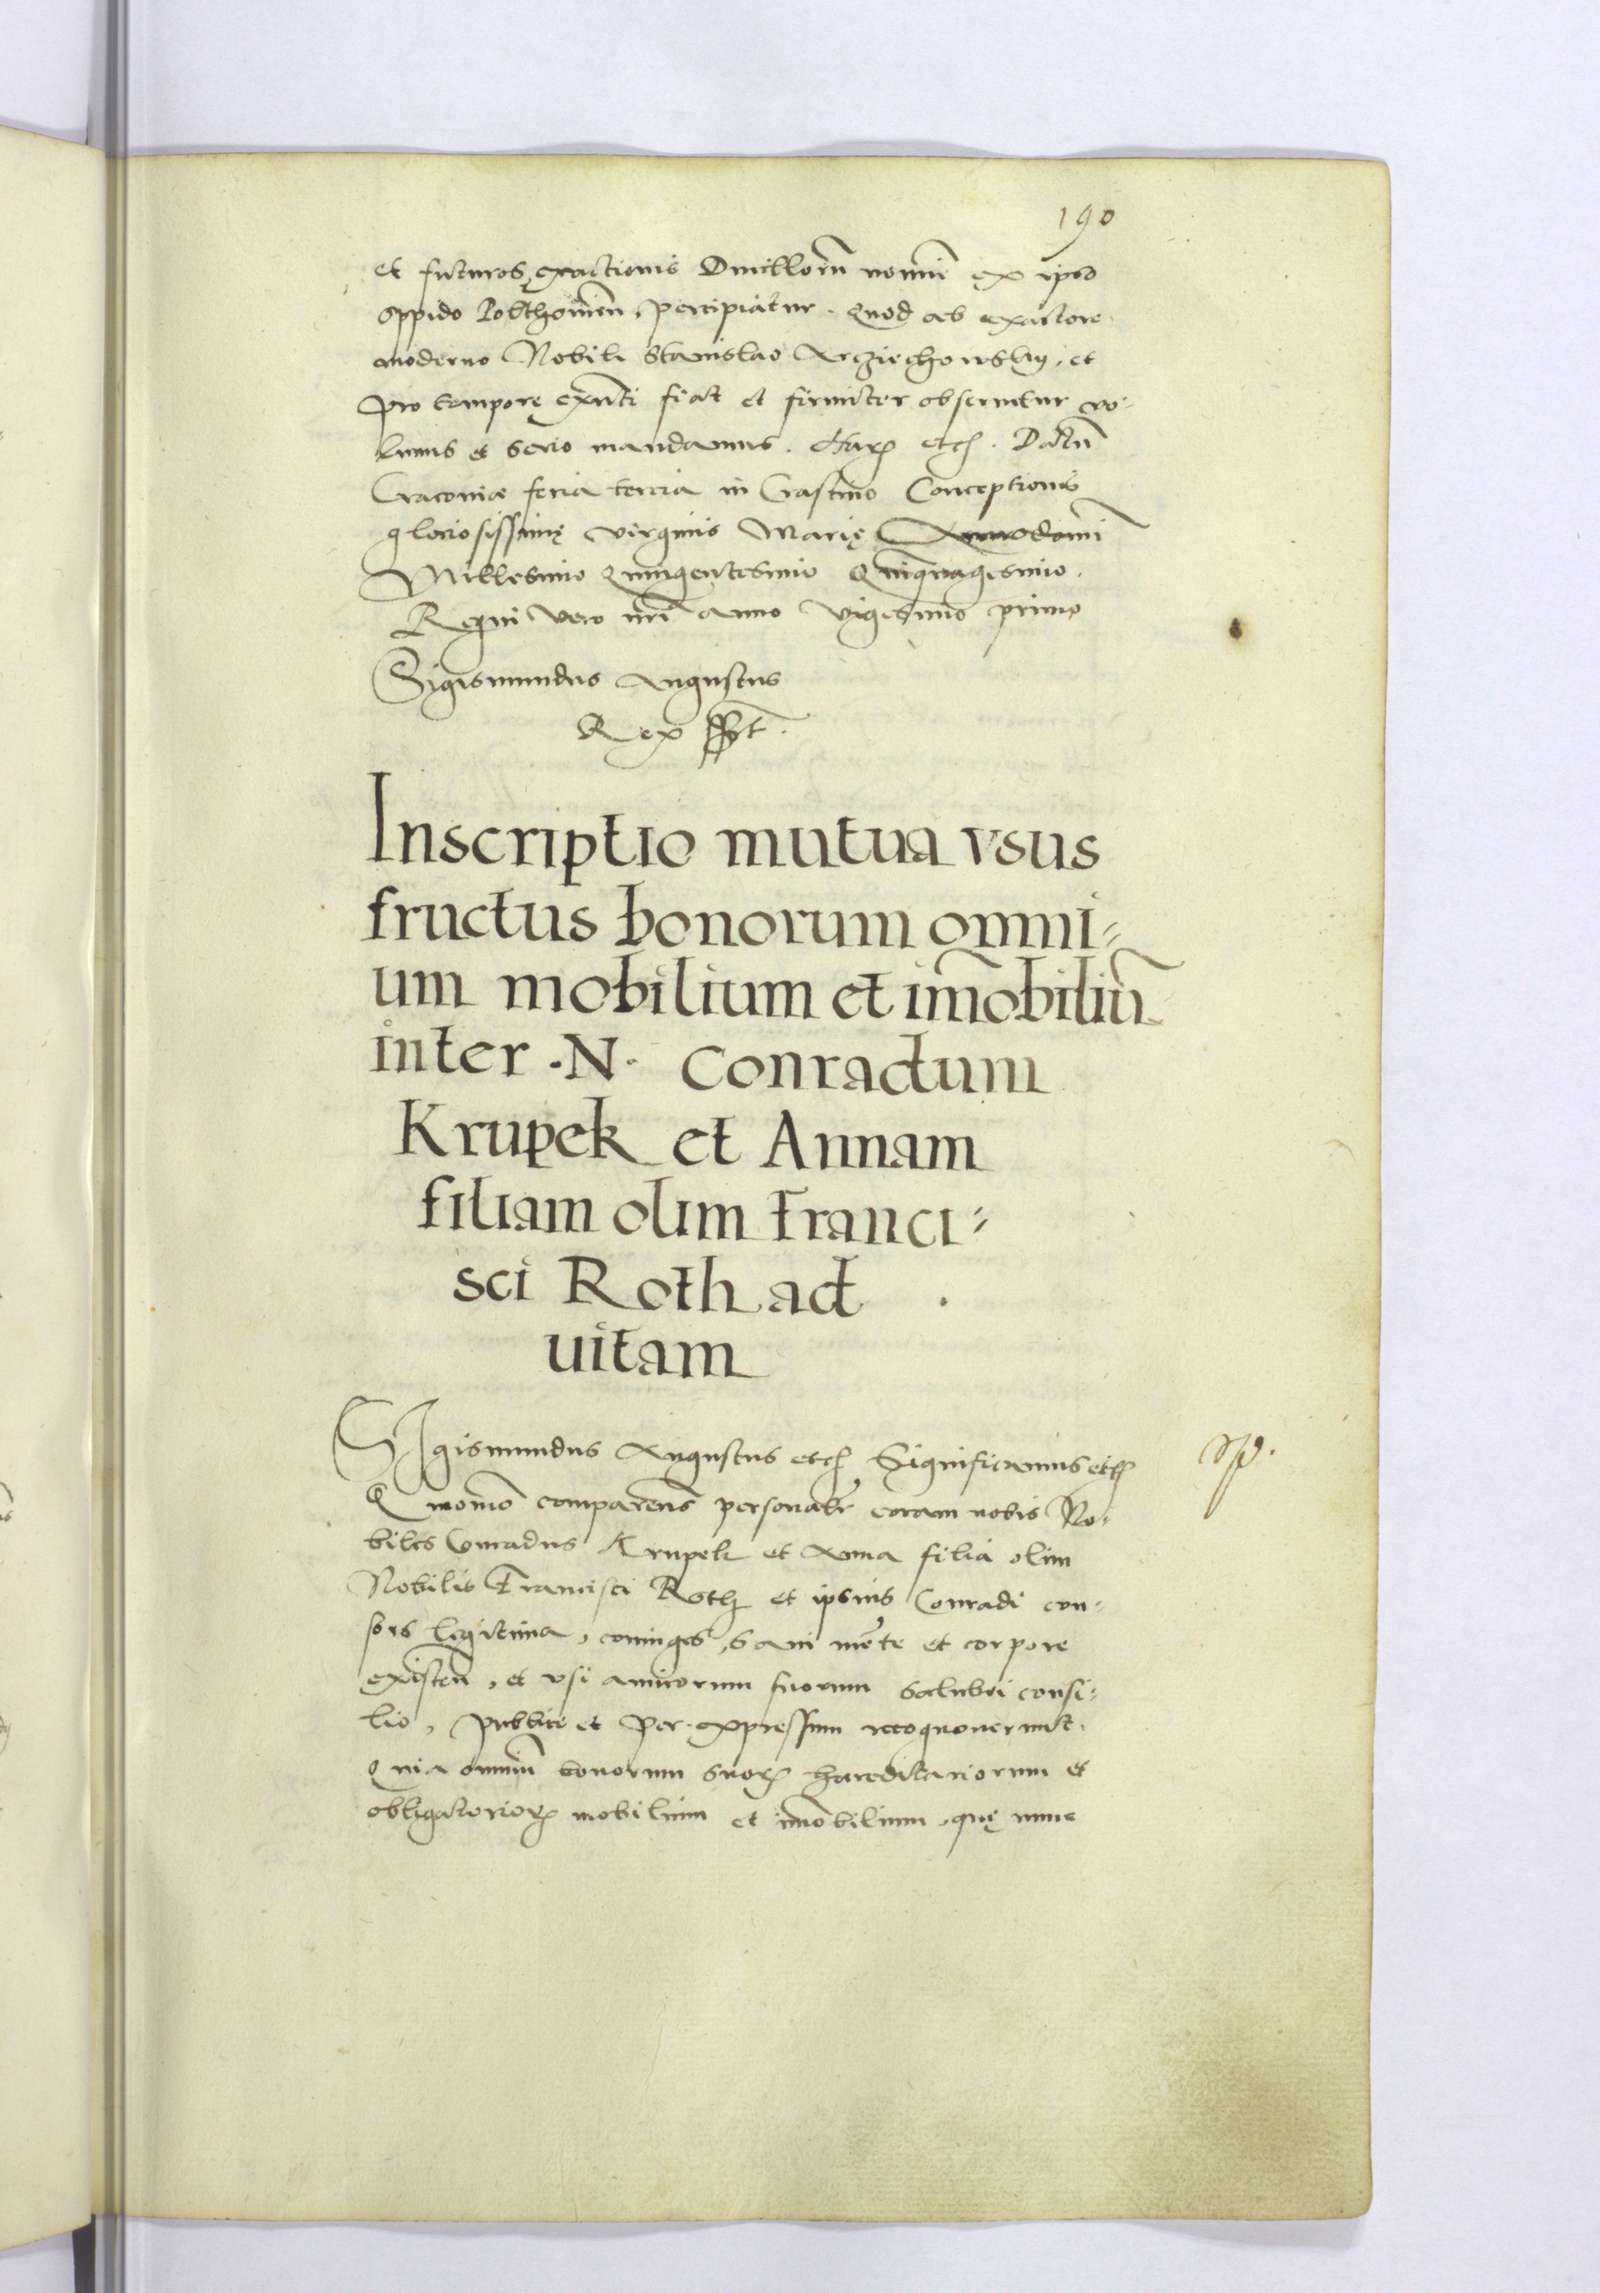 190
et futuros, exactionis Ducillorũ nomine ex ipso
oppido percipiatur. Quod ab exactore
moderno Nobili Stanislao et
pro tempore exñti fiat et firmiter obseruetur vo-
lumus et serio mandamus. Harꝝ etc. Datũ
Cracouiæ feria tercia in Crastino Conceptionis
gloriosissimę virginis Marię Anno domi
Millesimo Quingentesimo Quinquagesimo.
Regni vero nrĩ anno vigesimo primo
Sigismundus Augustus
Rex sst.
Inscriptio mutua vsus
fructus bonorum omni=
um mobilium et im̃obiliũ
inter .N. Conradum
Krupek et Annam
filiam olim Franci=
sci Roth ad
uitam
SIgismundus Augustus etc Significamus etc
Quomodo comparentes personalr̃ coram nobis No-
biles Conradus Krupek et Anna filia olim
Nobilis Francisci Roth et ipsius Conradi con-
sors legitima, coniuges, sani mẽte et corpore
existeñ, et vsi amicorum suorum salubri consi-
lio, publice et per expressum recognouerunt.
Quia omniũ bonorum suoꝝ hæreditariorum et
obligatorioꝝ mobilium et im̃obilium, quę nunc